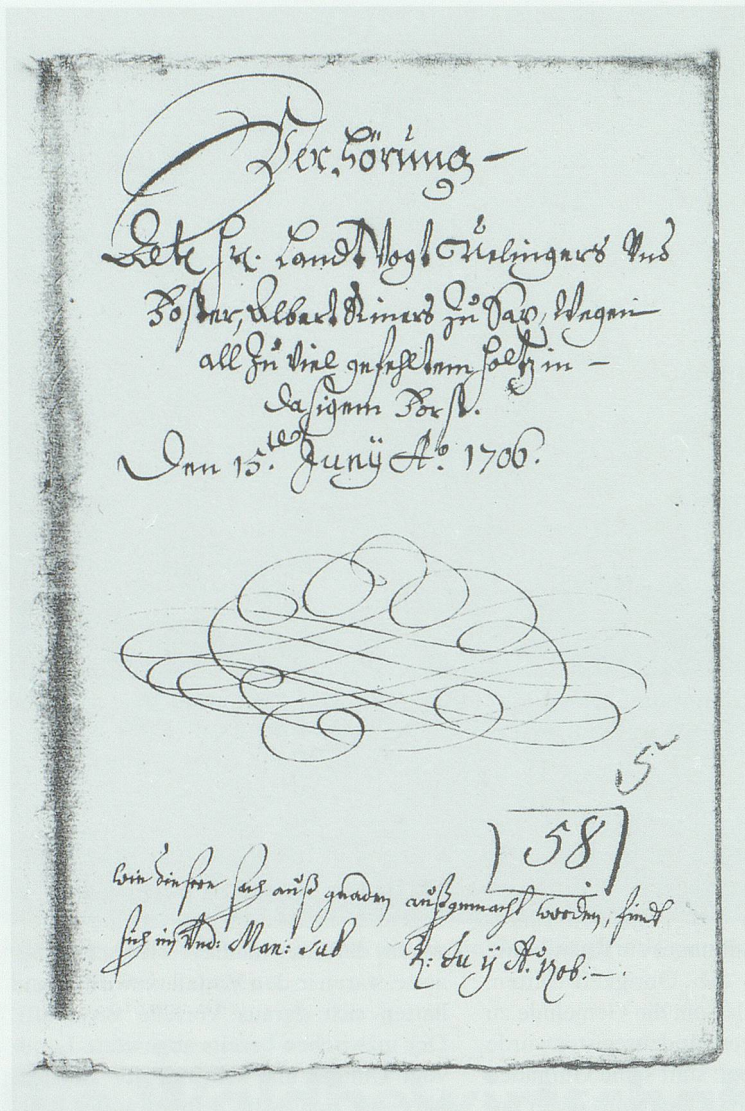 Verhörung –
Alt Hr. Landt Vogt Ulingers Und
Forster, Albert Riners zu Sax, Wegen
all zu viel gefehltem Holtz in –
dasigem Forst.
Den 15.ten Junÿ Aº. 1706.
5
58
wie diesere sach auß gnaden außgemacht worden, findt
sich im Und: Man: sub Aº. 1706. –